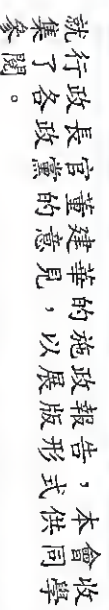 就行政長官董建華的施政報告，本會收
集了各政黨的意見，以展版形式供同學
參閱。